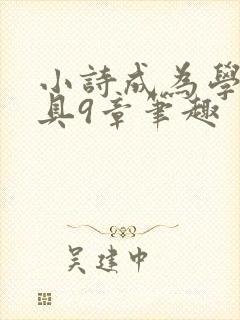 小詩成為學
具9章筆趣
吴建中